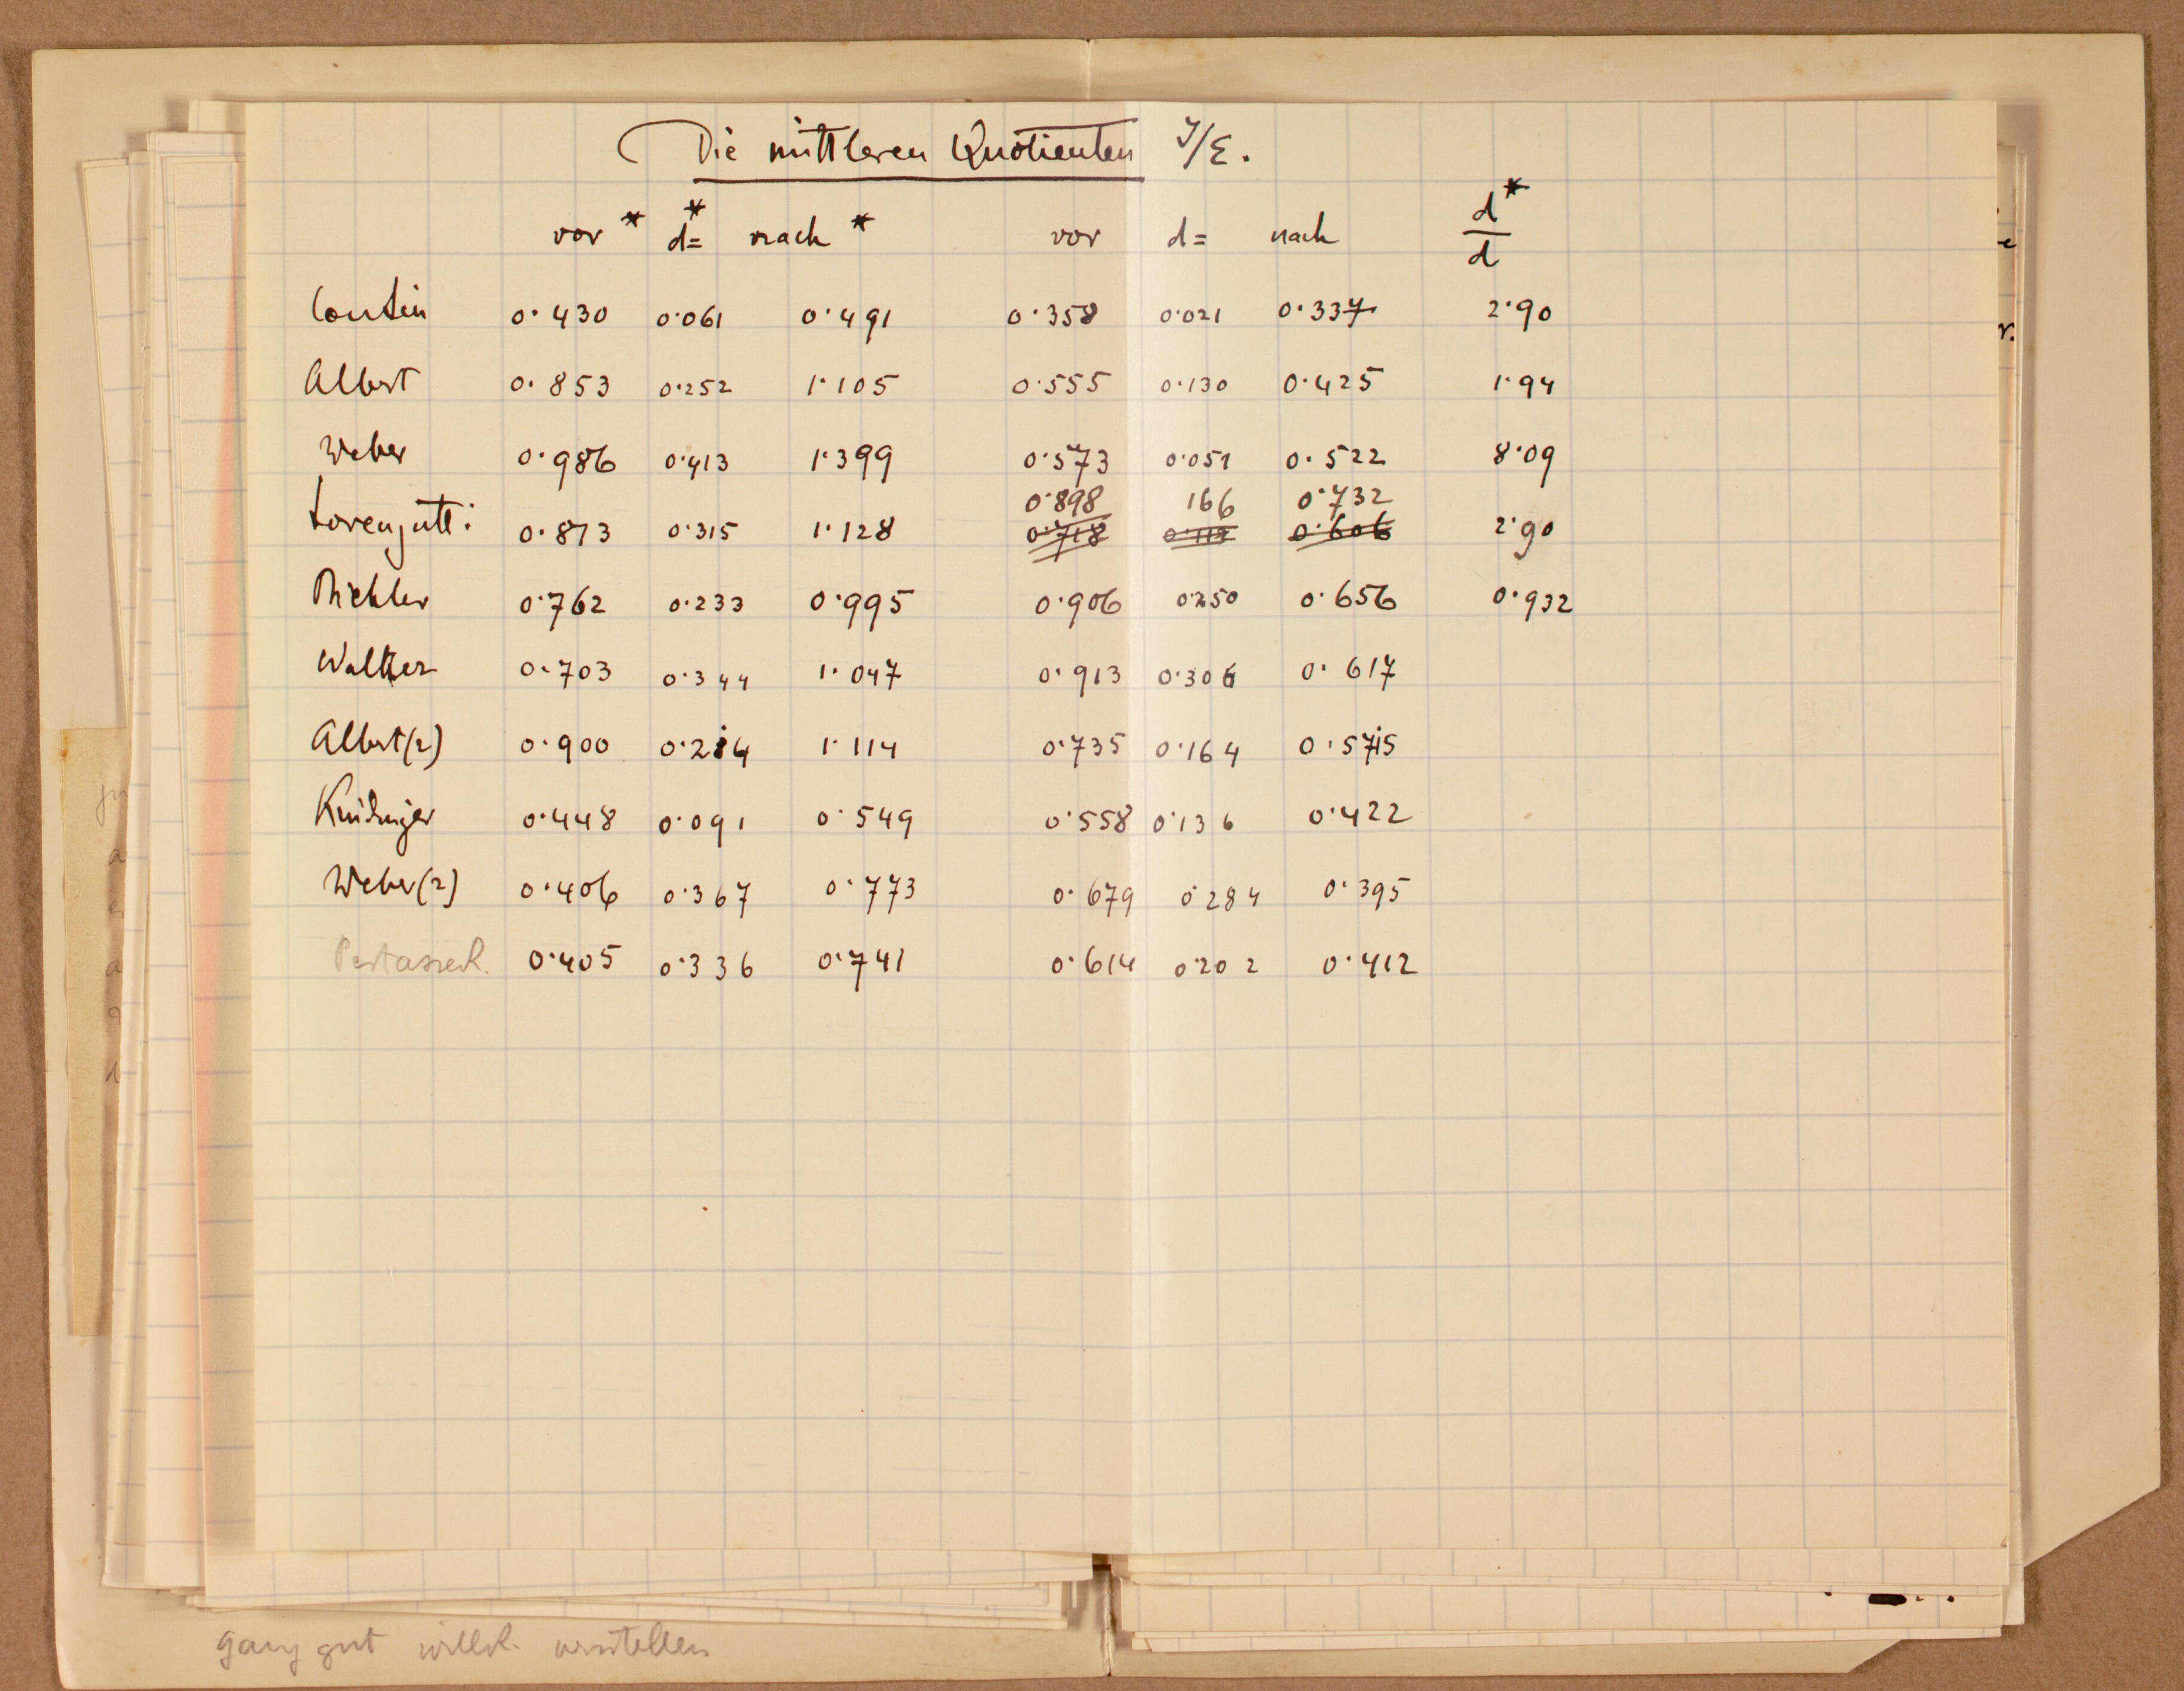 Die mittleren Quotienten J/E.
vor * d*= nach * vor d= nach d*/d
Contin 0·430 0·061 0·491 0·358 0·021 0·337 2·90
Albert 0·853 0·252 1·105 0·555 0·130 0·425 1·94
Weber 0·986 0·413 1·399 0·573 0·051 0·522 8·09
0·898 166 0·732
0·813 0·315 1·128 0·718 0·112 0·606 2·90
0·762 0·233 0·995 0·906 0·250 0·656 0·932
Walther 0·703 0·344 1·047 0·913 0·306 0·617
Albert(2) 0·900 0·214 1·114 0·735 0·164 0·575
0·448 0·091 0·549 0·558 0·136 0·422
Weber(2) 0·406 0·367 0·773 0·679 0·284 0·395
0·405 0·336 0·741 0·614 0·202 0·412
ganz gut willk.